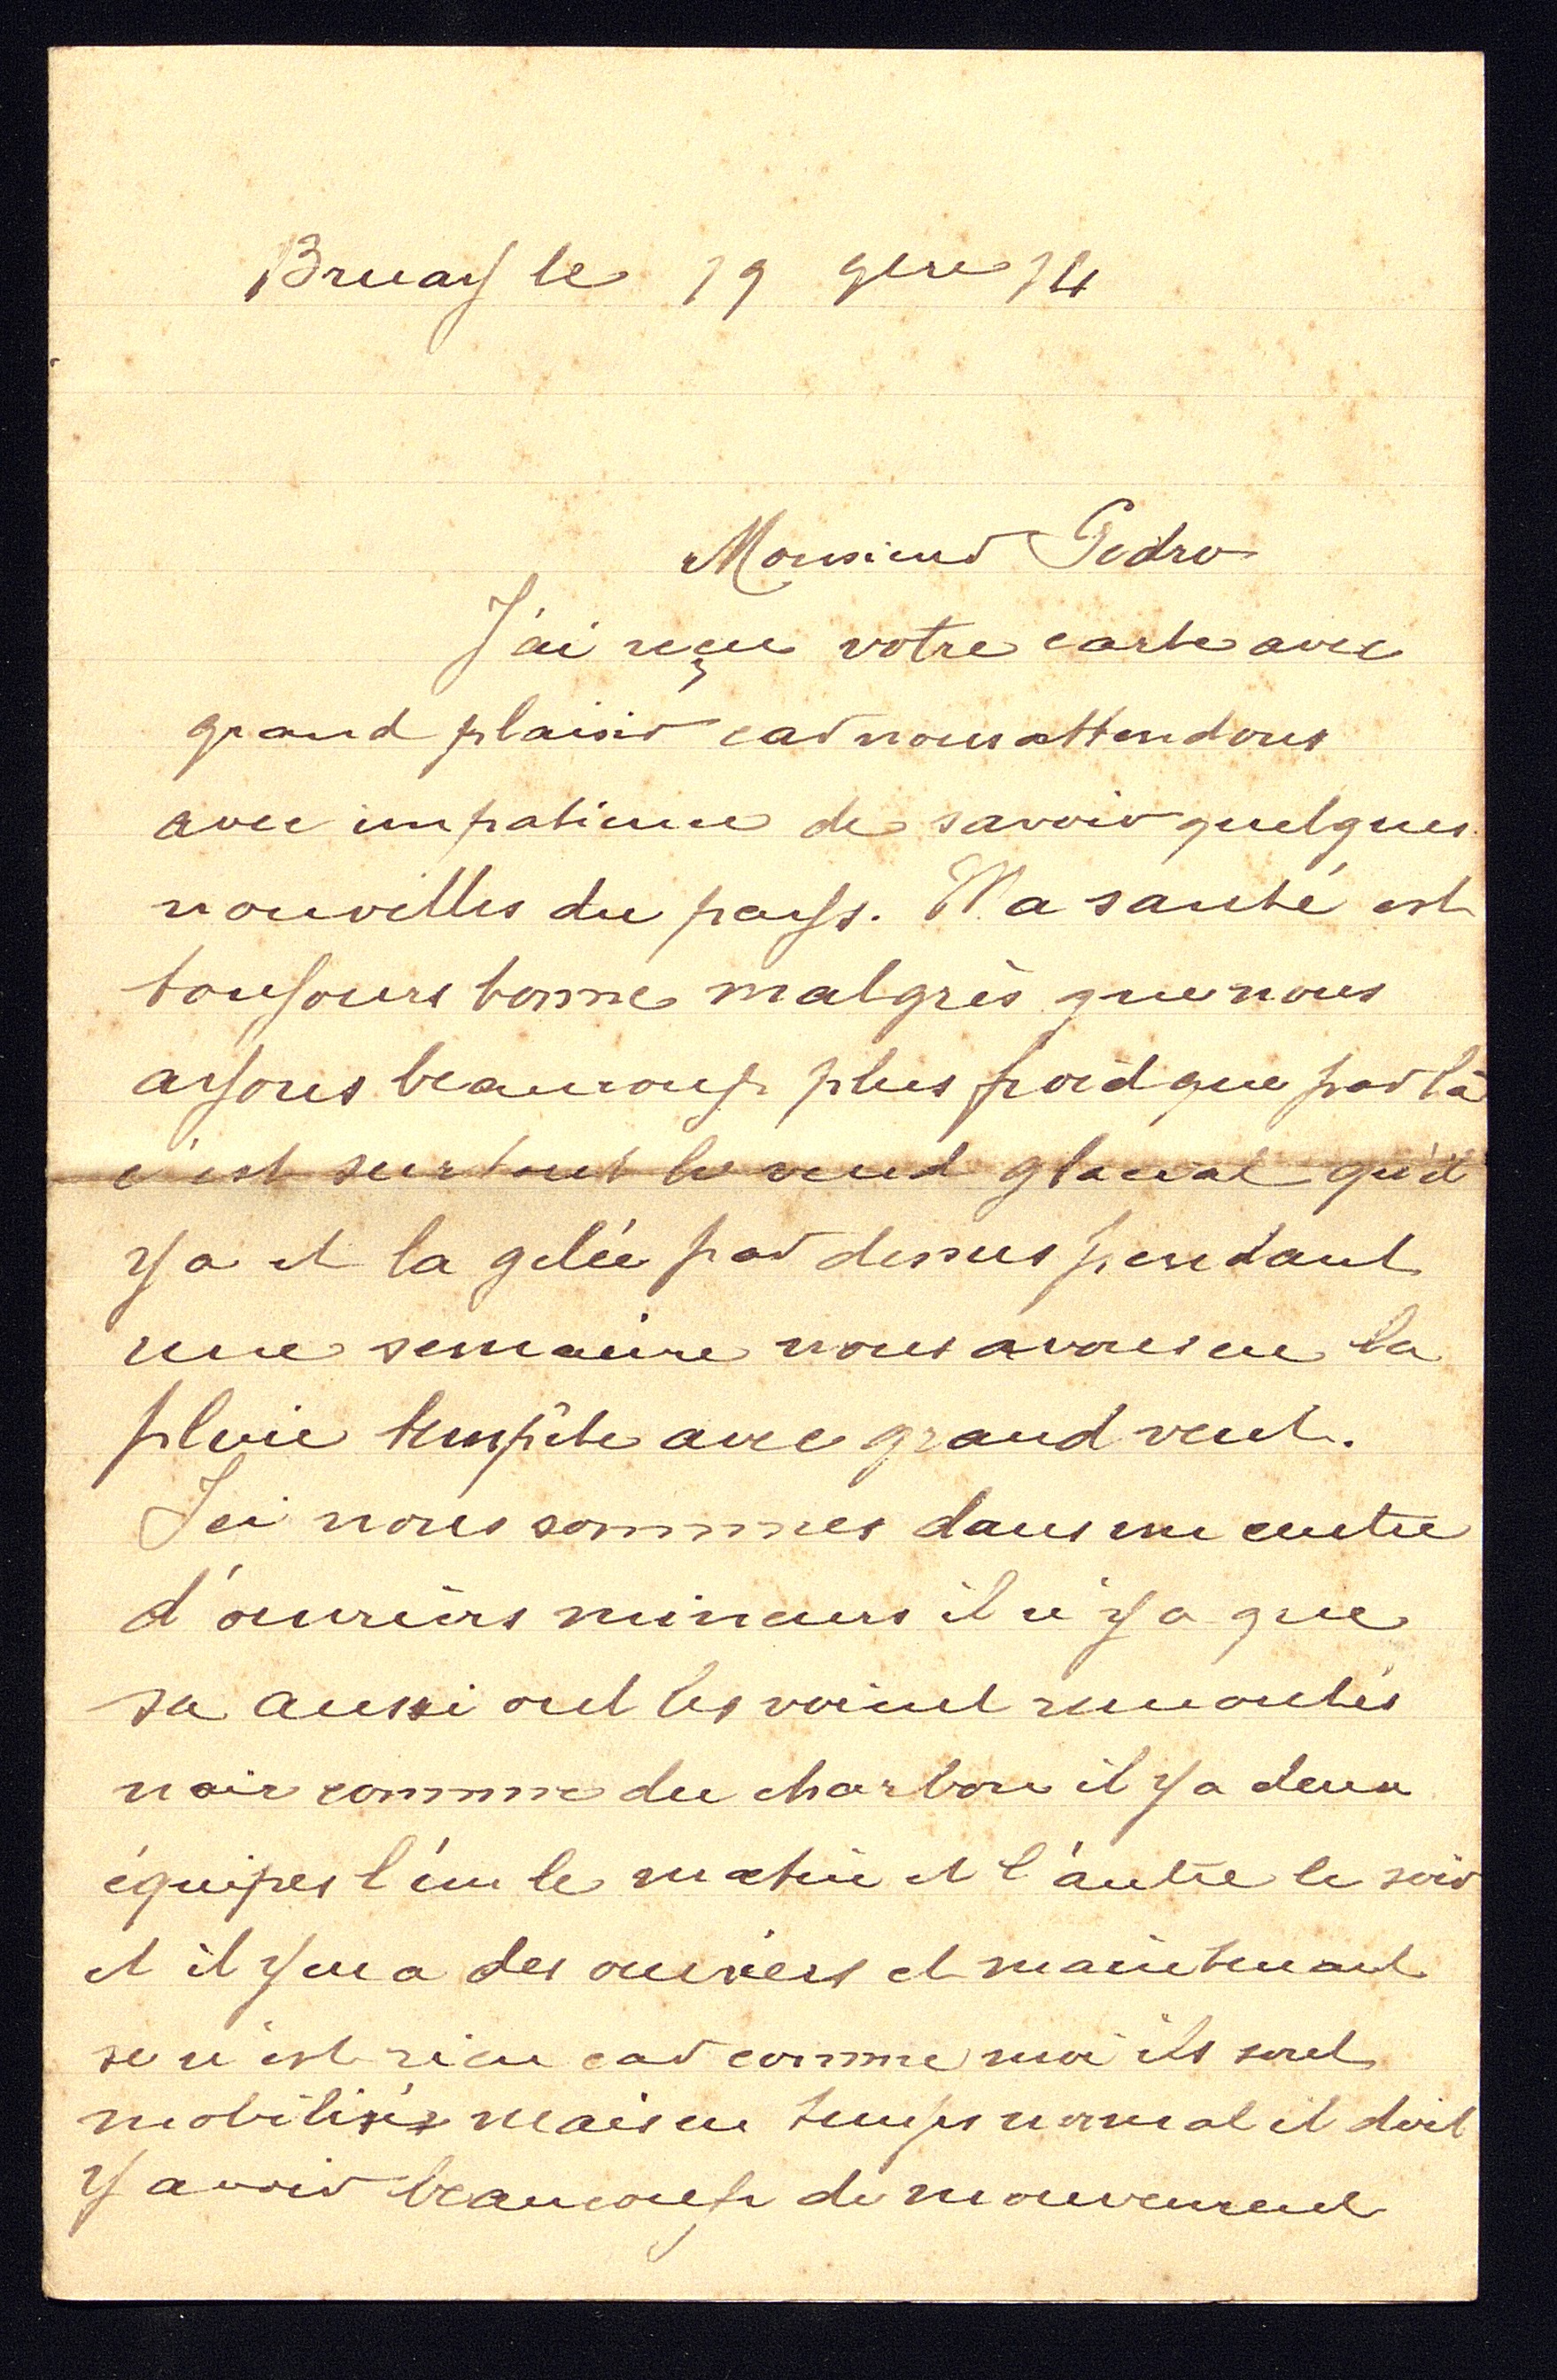 Bruay le 19 9bre 14
Monsieur Pedro
J'ai reçue votre carte avec
grand plaisir car nous attendons
avec impatience de savoir quelques
nouvelles du pays. Ma santé est
toujours bonne malgrès que nous
ayons beaucoup plus froid que par là
c'est surtout le vend glacial qu'il
y a et la gelée par dessus pendant
une semaine nous avons eu la
pluie tempête avec grand vent.
Ici nous sommes dans un centre
d'ouvriers mineurs il n'y a que
sa aussi ont les voient remontés
noir comme du charbon il y a deux
équipes l'un le matin et l'autre le soir
et il y en a des ouvriers et maintenant
se n'est rien car comme moi ils sont
mobilisés mais en temps normal il doit
y avoir beaucoup de mouvement